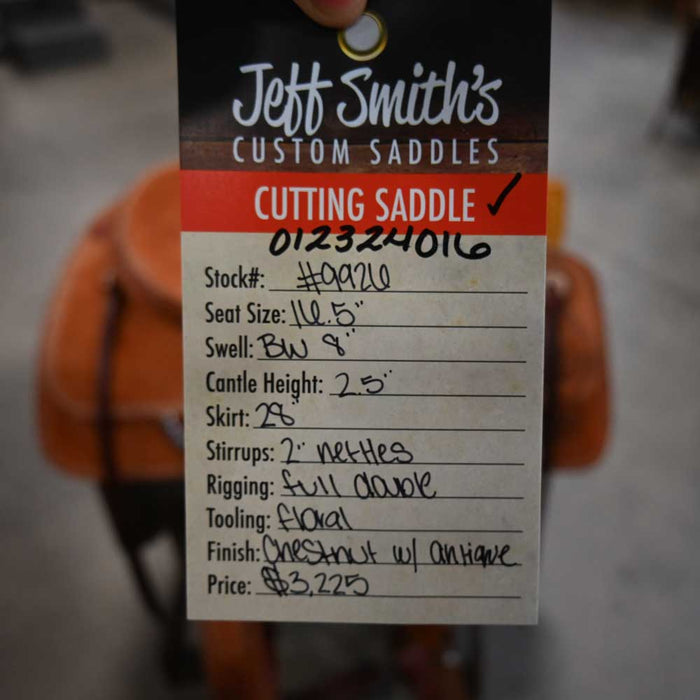 Jeff Smith's
CUSTOM SADDLES
CUTTING SADDLE ✓
012324016
Stock#: #9926
Seat Size: 16.5"
Swell: BW 8"
Cantle Height: 2.5"
Skirt: 28"
Stirrups: 2" nettles
Rigging: full double
Tooling: floral
Finish: Chestnut w/ antique
Price: $3,225